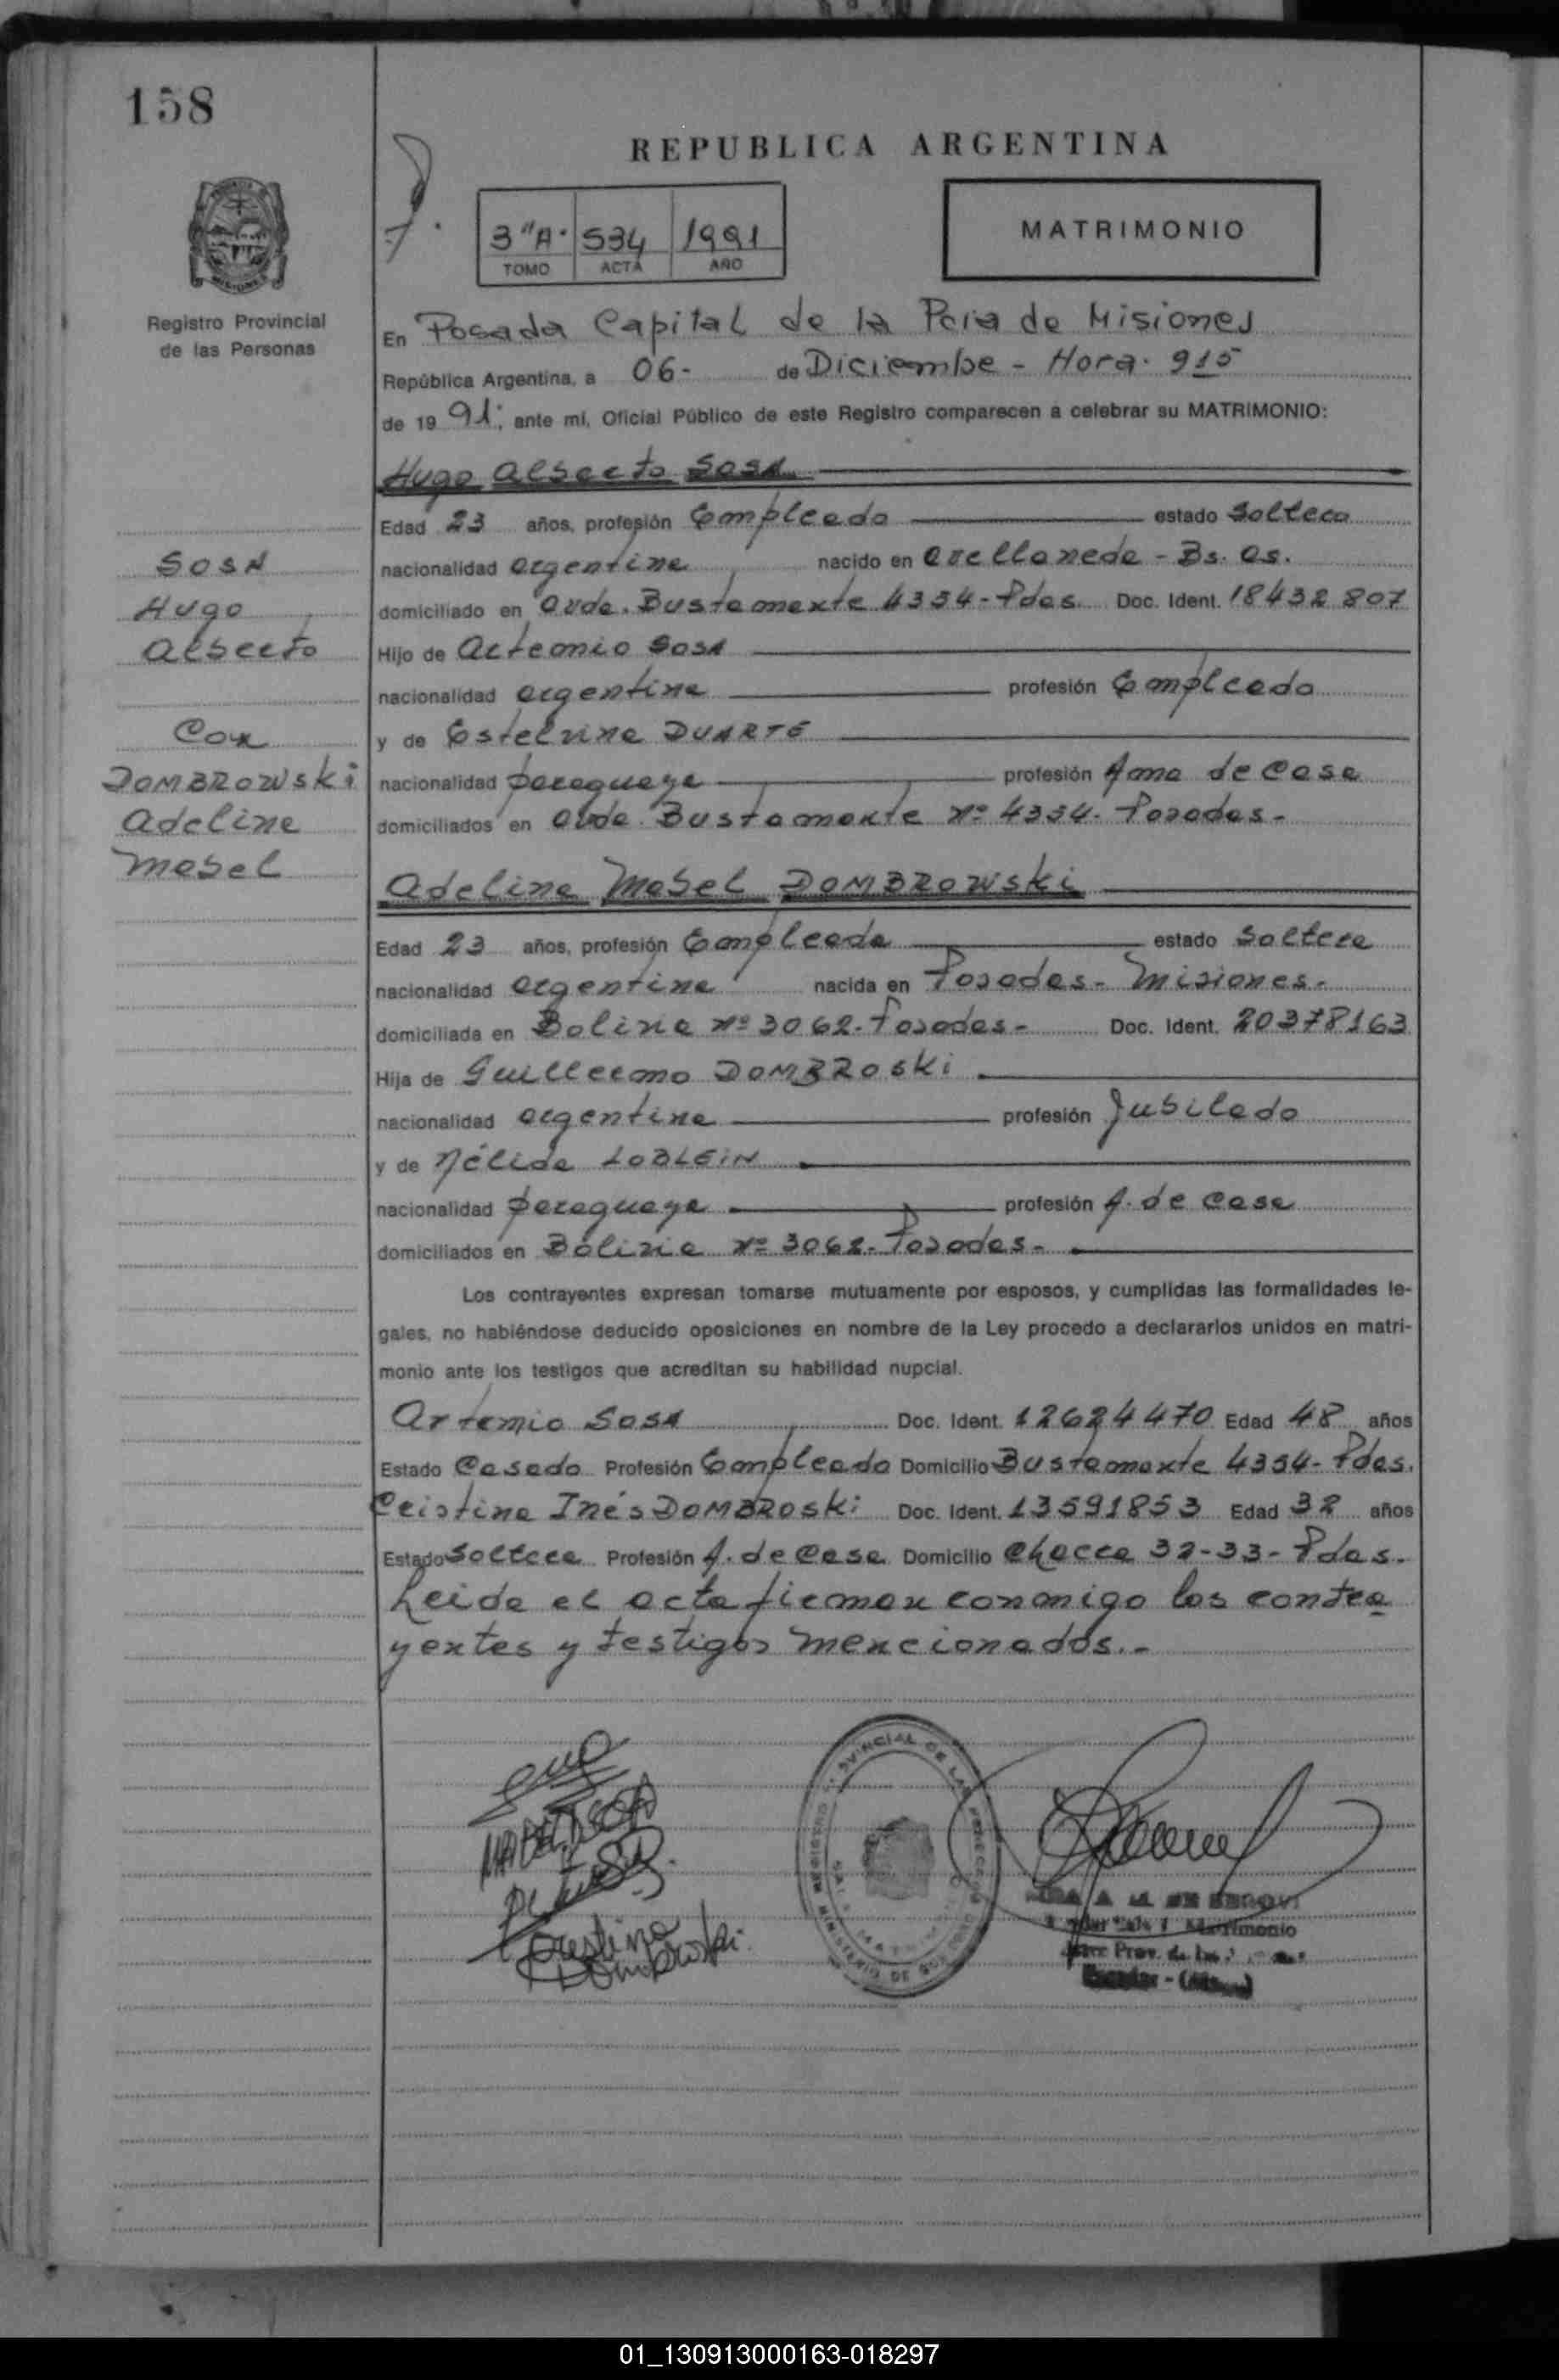 158
REPUBLICA ARGENTINA
3"A" 534 1991
TOMO ACTA AÑO
MATRIMONIO
Registro Provincial
de las Personas
En Posada Capital de la Pcia de Misiones
República Argentina, a 06- de Diciembe - Hora. 915
de 19 91; ante mí, Oficial Público de este Registro comparecen a celebrar su MATRIMONIO:
Hugo Alberto SOSA
Edad 23 años, profesión Empleado estado Soltero
nacionalidad argentina nacido en Avellaneda - Bs. As.
domiciliado en Avda. Bustamante 4334 - Pdas. Doc. Ident. 18432807
Hijo de Artemio SOSA
nacionalidad argentina profesión Empleado
y de Estelvina DUARTE
nacionalidad paraguaya profesión Ama de casa
domiciliados en Avda. Bustamante Nº 4334. Posadas-
SOSA
Hugo
Alberto
Con
DOMBROWSki
Adelina
Mabel
Adelina Mabel DOMBROWSki
Edad 23 años, profesión Empleada estado Soltera
nacionalidad argentina nacida en Posadas- Misiones.
domiciliada en Bolivia Nº 3062-Posadas- Doc. Ident. 20378163
Hija de Guillermo DOMBROSki
nacionalidad argentina profesión Jubilado
y de Nélida LOBLEIN
nacionalidad paraguaya profesión A. de casa
domiciliados en Bolivia Nº 3062-Posadas-
Los contrayentes expresan tomarse mutuamente por esposos, y cumplidas las formalidades le-
gales, no habiéndose deducido oposiciones en nombre de la Ley procedo a declararlos unidos en matri-
monio ante los testigos que acreditan su habilidad nupcial.
Artemio SOSA Doc. Ident. 12624470 Edad 48 años
Estado Casado Profesión Empleado Domicilio Bustamante 4334- Pdas.
Cristina Inés DOMBROSki Doc. Ident. 13591853 Edad 32 años
Estado Soltera Profesión A. de casa Domicilio Chacra 32-33- Pdas.
Leida el acta firman conmigo los contra
yentes y testigos mencionados.-
Cristina
Dombrowski
REGISTRO PROVINCIAL DE LAS
MINISTERIO DE GOBIERNO
Matrimonio
Prov. de las
01_130913000163-018297